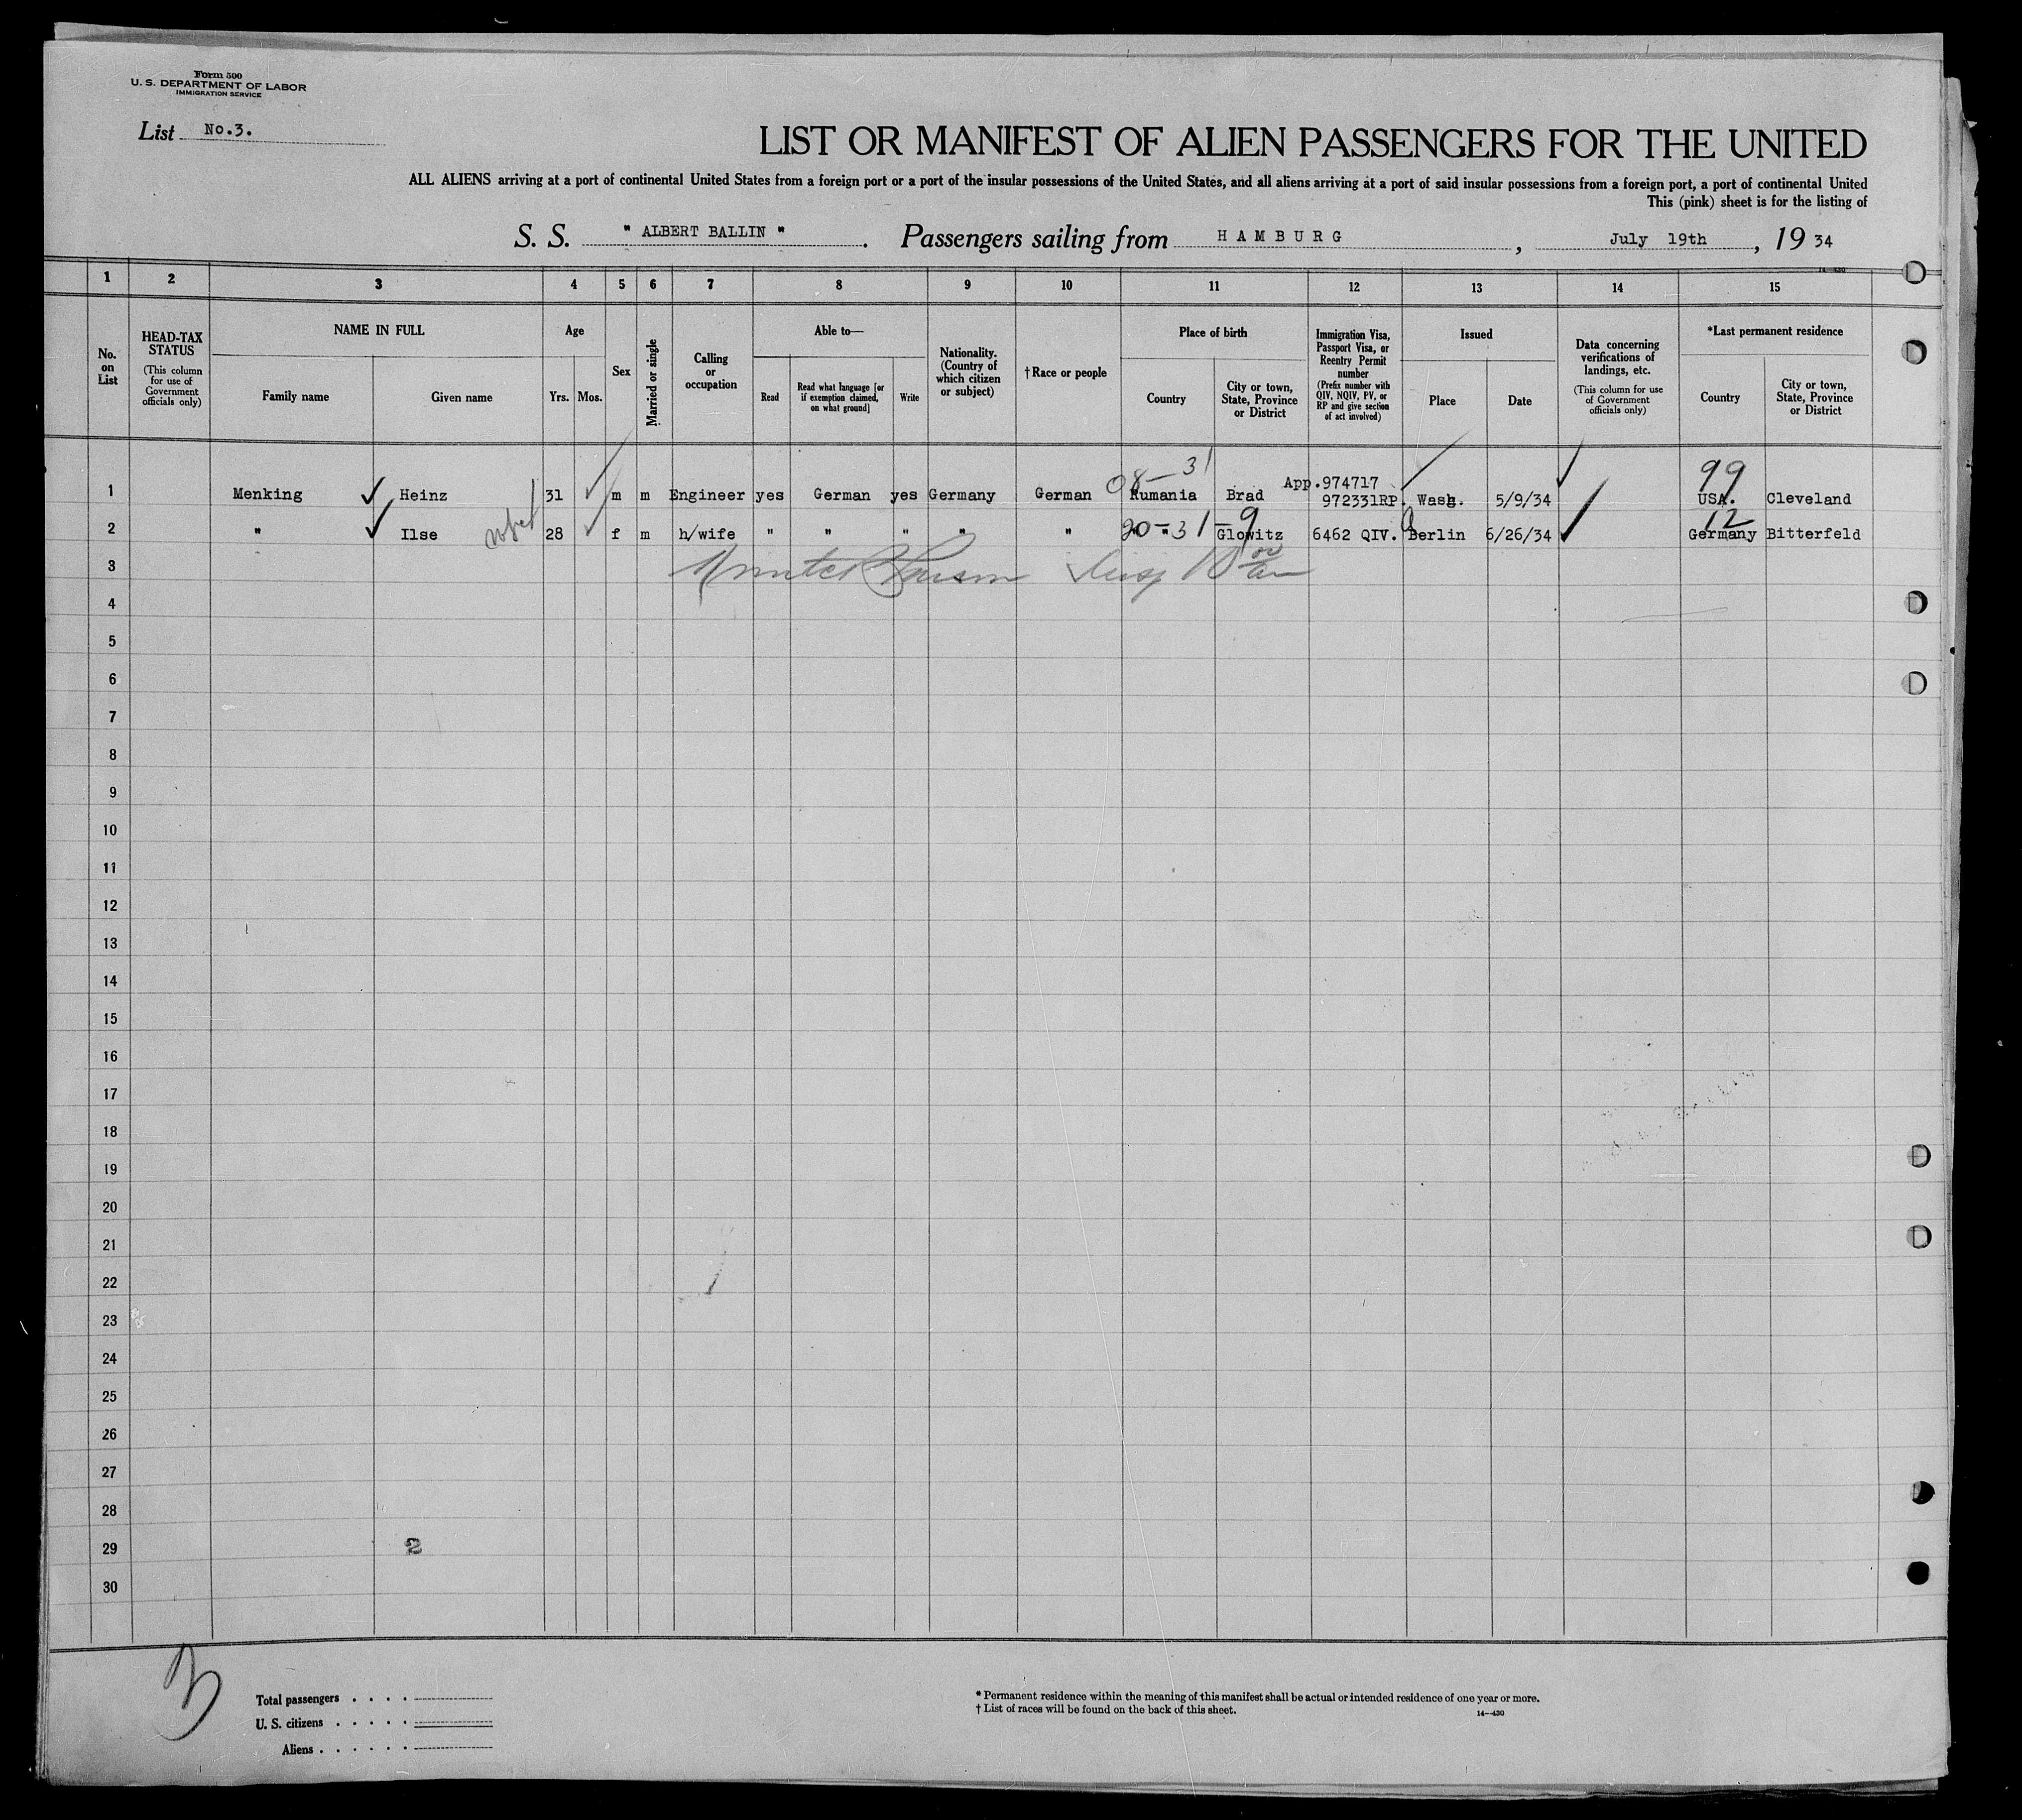 Form 500
U. S. DEPARTMENT OF LABOR
IMMIGRATION SERVICE
List No.3.
LIST OR MANIFEST OF ALIEN PASSENGERS FOR THE UNITED
ALL ALIENS arriving at a port of continental United States from a foreign port or a port of the insular possessions of the United States, and all aliens arriving at a port of said insular possessions from a foreign port, a port of continental United
This (pink) sheet is for the listing of
S. S. " ALBERT BALLIN ". Passengers sailing from HAMBURG, July 19th, 19 34
14—430
1 2 3 4 5 6 7 8 9 10 11 12 13 14 15
No. on List
HEAD-TAX STATUS
(This column for use of Government officials only)
NAME IN FULL
Family name
Given name
Age
Yrs. Mos.
Sex
Married or single
Calling or occupation
Able to—
Read
Read what language [or if exemption claimed, on what ground]
Write
Nationality. (Country of which citizen or subject)
†Race or people
Place of birth
Country
City or town, State, Province or District
Immigration Visa, Passport Visa, or Reentry Permit number
(Prefix number with QIV, NQIV, PV, or RP and give section of act involved)
Issued
Place
Date
Data concerning verifications of landings, etc.
(This column for use of Government officials only)
*Last permanent residence
Country
City or town, State, Province or District
08-31 99
App.974717
1 Menking Heinz 31 m m Engineer yes German yes Germany German Rumania Brad 972331RP. Wash. 5/9/34 USA. Cleveland
20-31-9 12
2 " Ilse 28 f m h/wife " " " " " " Glowitz 6462 QIV. Berlin 6/26/34 Germany Bitterfeld
3
4
5
6
7
8
9
10
11
12
13
14
15
16
17
18
19
20
21
22
23
24
25
26
27
28
29
2
30
3
Total passengers . . . .
U. S. citizens . . . . .
Aliens . . . . . .
* Permanent residence within the meaning of this manifest shall be actual or intended residence of one year or more.
† List of races will be found on the back of this sheet.
14—430